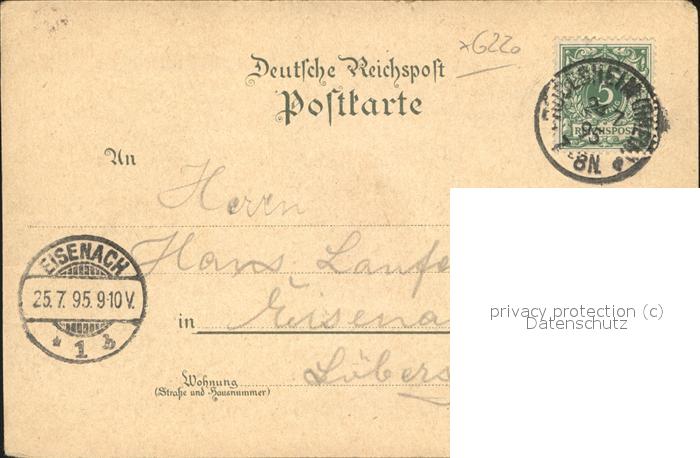 x6220
Deutsche Reichspost
Postkarte
5
REICHSPOST
RÜDESHEIM (RHEIN)
24.7
95
8N.
An
Herrn
Hans Laufe
in Eisena
Löbers
Wohnung
(Straße und Hausnummer)
EISENACH
25.7.95.9-10V.
* 1 b
privacy protection (c)
Datenschutz